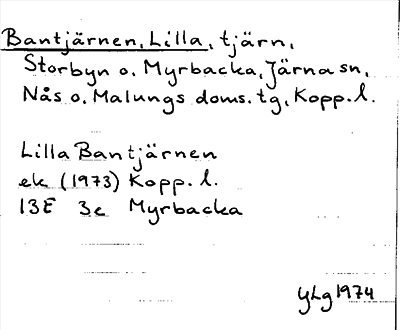 Bantjärnen, Lilla, tjärn,
Storbyn o. Myrbacka, Järna sn,
Nås o. Malungs doms. tg, Kopp. l.
Lilla Bantjärnen
ek (1973) Kopp. l.
13E 3c Myrbacka
YLg 1974